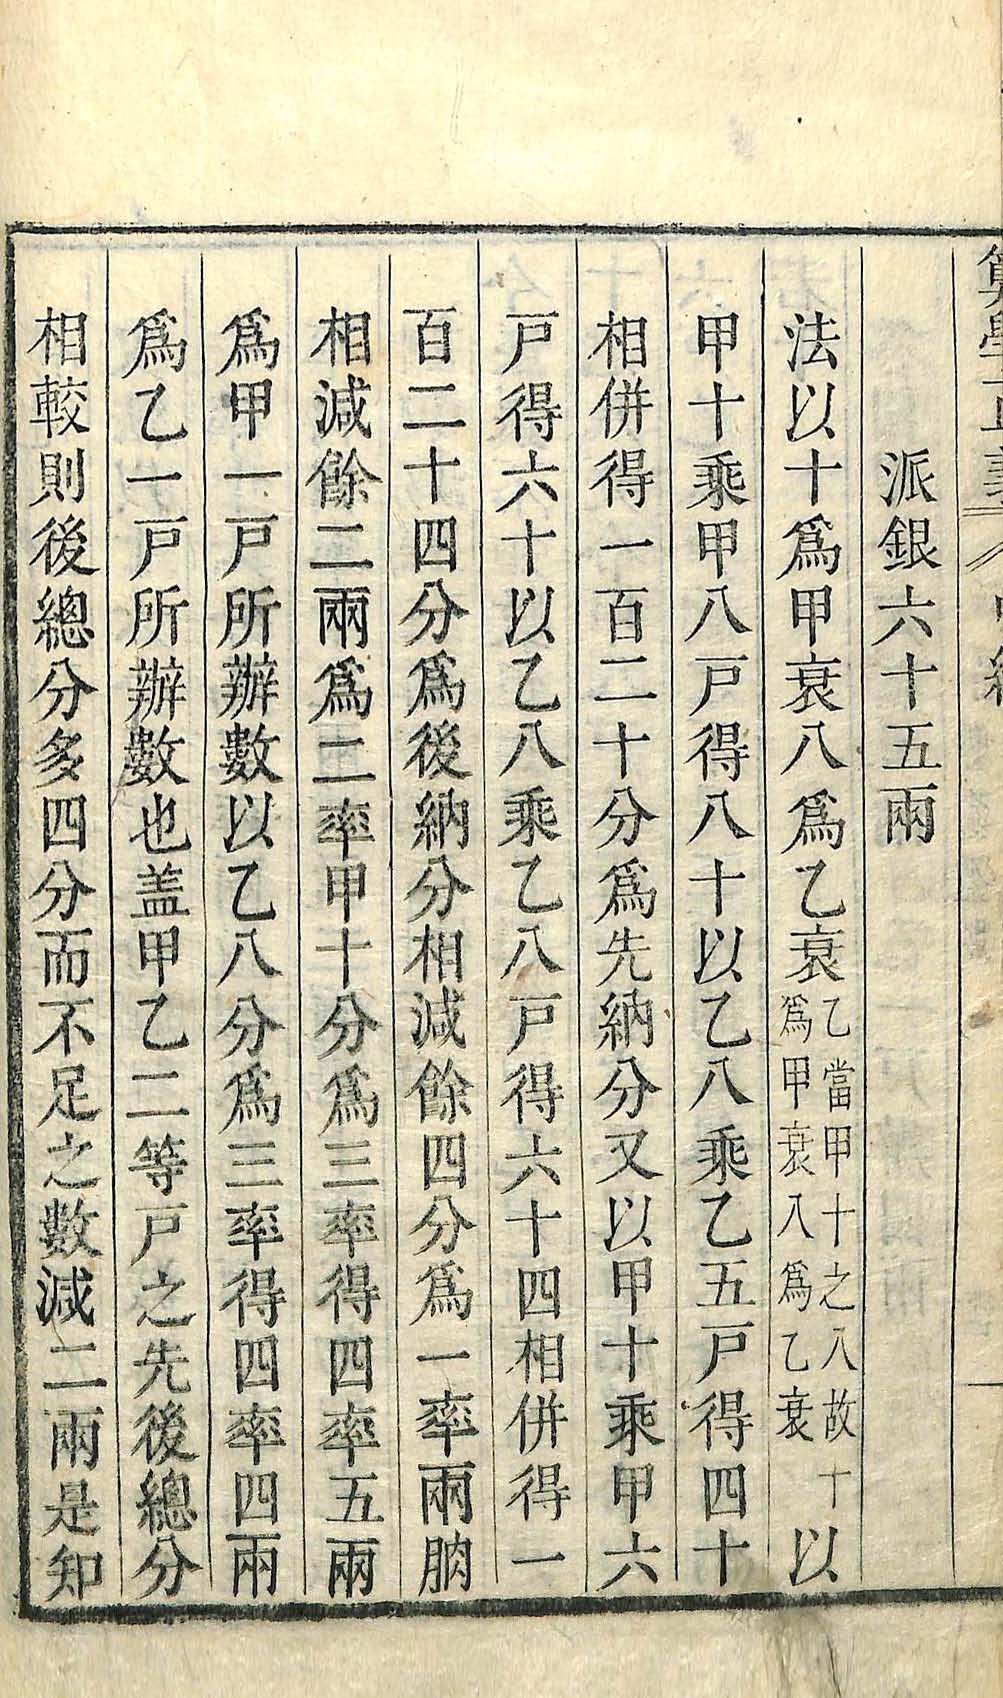 派銀六十五兩
法以十爲甲衰八爲乙衰乙當甲十之八故十爲甲衰八爲乙衰以
甲十乘甲八戸得八十以乙八乘乙五戸得四十
相併得一百二十分爲先納分又以甲十乘甲六
戸得六十以乙八乘乙八戸得六十四相併得一
百二十四分爲後納分相減餘四分爲一率兩朒
相減餘二兩爲二率甲十分爲三率得四率五兩
爲甲一戸所辦數以乙八分爲三率得四率四兩
爲乙一戸所辦數也盖甲乙二等戸之先後總分
相較則後總分多四分而不足之數減二兩是知